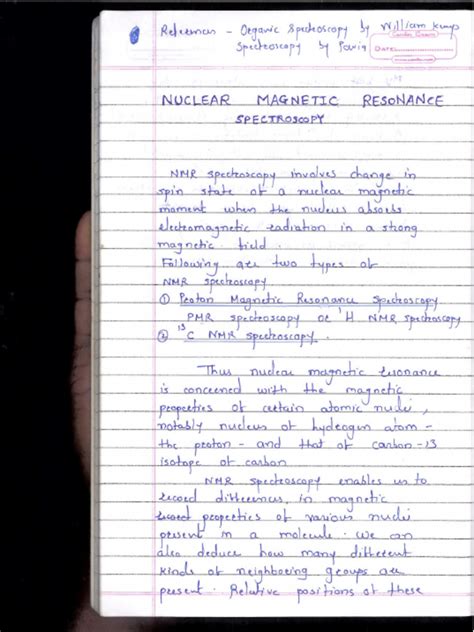 References - Organic Spectroscopy by William Kemp
Spectroscopy by Pavia
Date:
NUCLEAR MAGNETIC RESONANCE
SPECTROSCOPY
NMR spectroscopy involves change in
spin state of a nuclear magnetic
moment when the nucleus absorbs
electromagnetic radiation in a strong
magnetic field.
Following are two types of
NMR spectroscopy
① Proton Magnetic Resonance Spectroscopy
PMR spectroscopy or ¹H NMR spectroscopy
② ¹³C NMR spectroscopy.
Thus nuclear magnetic resonance
is concerned with the magnetic
properties of certain atomic nuclei,
notably nucleus of hydrogen atom -
the proton - and that of carbon-13
isotope of carbon
NMR spectroscopy enables us to
record differences in magnetic
record properties of various nuclei
present in a molecule. We can
also deduce how many different
kinds of neighboring groups are
present. Relative positions of these